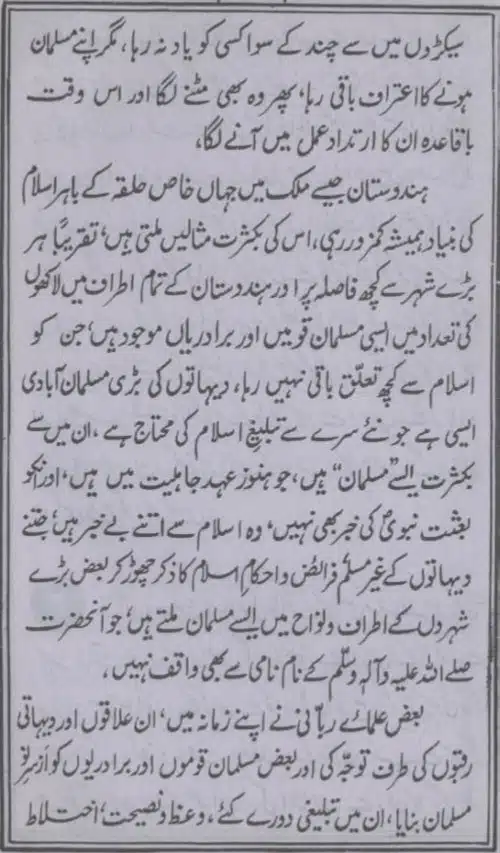 سیکڑوں میں سے چند کے سوا کسی کو یاد نہ رہا، مگر اپنے مسلمان
ہونے کا اعتراف باقی رہا، پھر وہ بھی مٹنے لگا اور اس وقت
باقاعدہ ان کا ارتداد عمل میں آنے لگا،
ہندوستان جیسے ملک میں جہاں خاص حلقہ کے باہر اسلام
کی بنیاد ہمیشہ کمزور رہی، اس کی بکثرت مثالیں ملتی ہیں، تقریباً ہر
بڑے شہر سے کچھ فاصلہ پر اور ہندوستان کے تمام اطراف میں لاکھوں
کی تعداد میں ایسی مسلمان قومیں اور برادریاں موجود ہیں، جن کو
اسلام سے کچھ تعلّق باقی نہیں رہا، دیہاتوں کی بڑی مسلمان آبادی
ایسی ہے جو نئے سرے سے تبلیغِ اسلام کی محتاج ہے، ان میں سے
بکثرت ایسے "مسلمان" ہیں، جو ہنوز عہد جاہلیت میں ہیں، اور انکو
بعثت نبویؐ کی خبر بھی نہیں، وہ اسلام سے اتنے بے خبر ہیں، جتنے
دیہاتوں کے غیر مسلم، فرائض و احکامِ اسلام کا ذکر چھوڑ کر بعض بڑے
شہروں کے اطراف و نواح میں ایسے مسلمان ملتے ہیں، جو آنحضرت
صلے اللہ علیہ وآلہٖ وسلّم کے نام نامی سے بھی واقف نہیں،
بعض علمائے ربّانی نے اپنے زمانہ میں، ان علاقوں اور دیہاتی
رقبوں کی طرف توجّہ کی اور بعض مسلمان قوموں اور برادریوں کو از سرِ نو
مسلمان بنایا، ان میں تبلیغی دورے کئے، وعظ و نصیحت، اختلاط